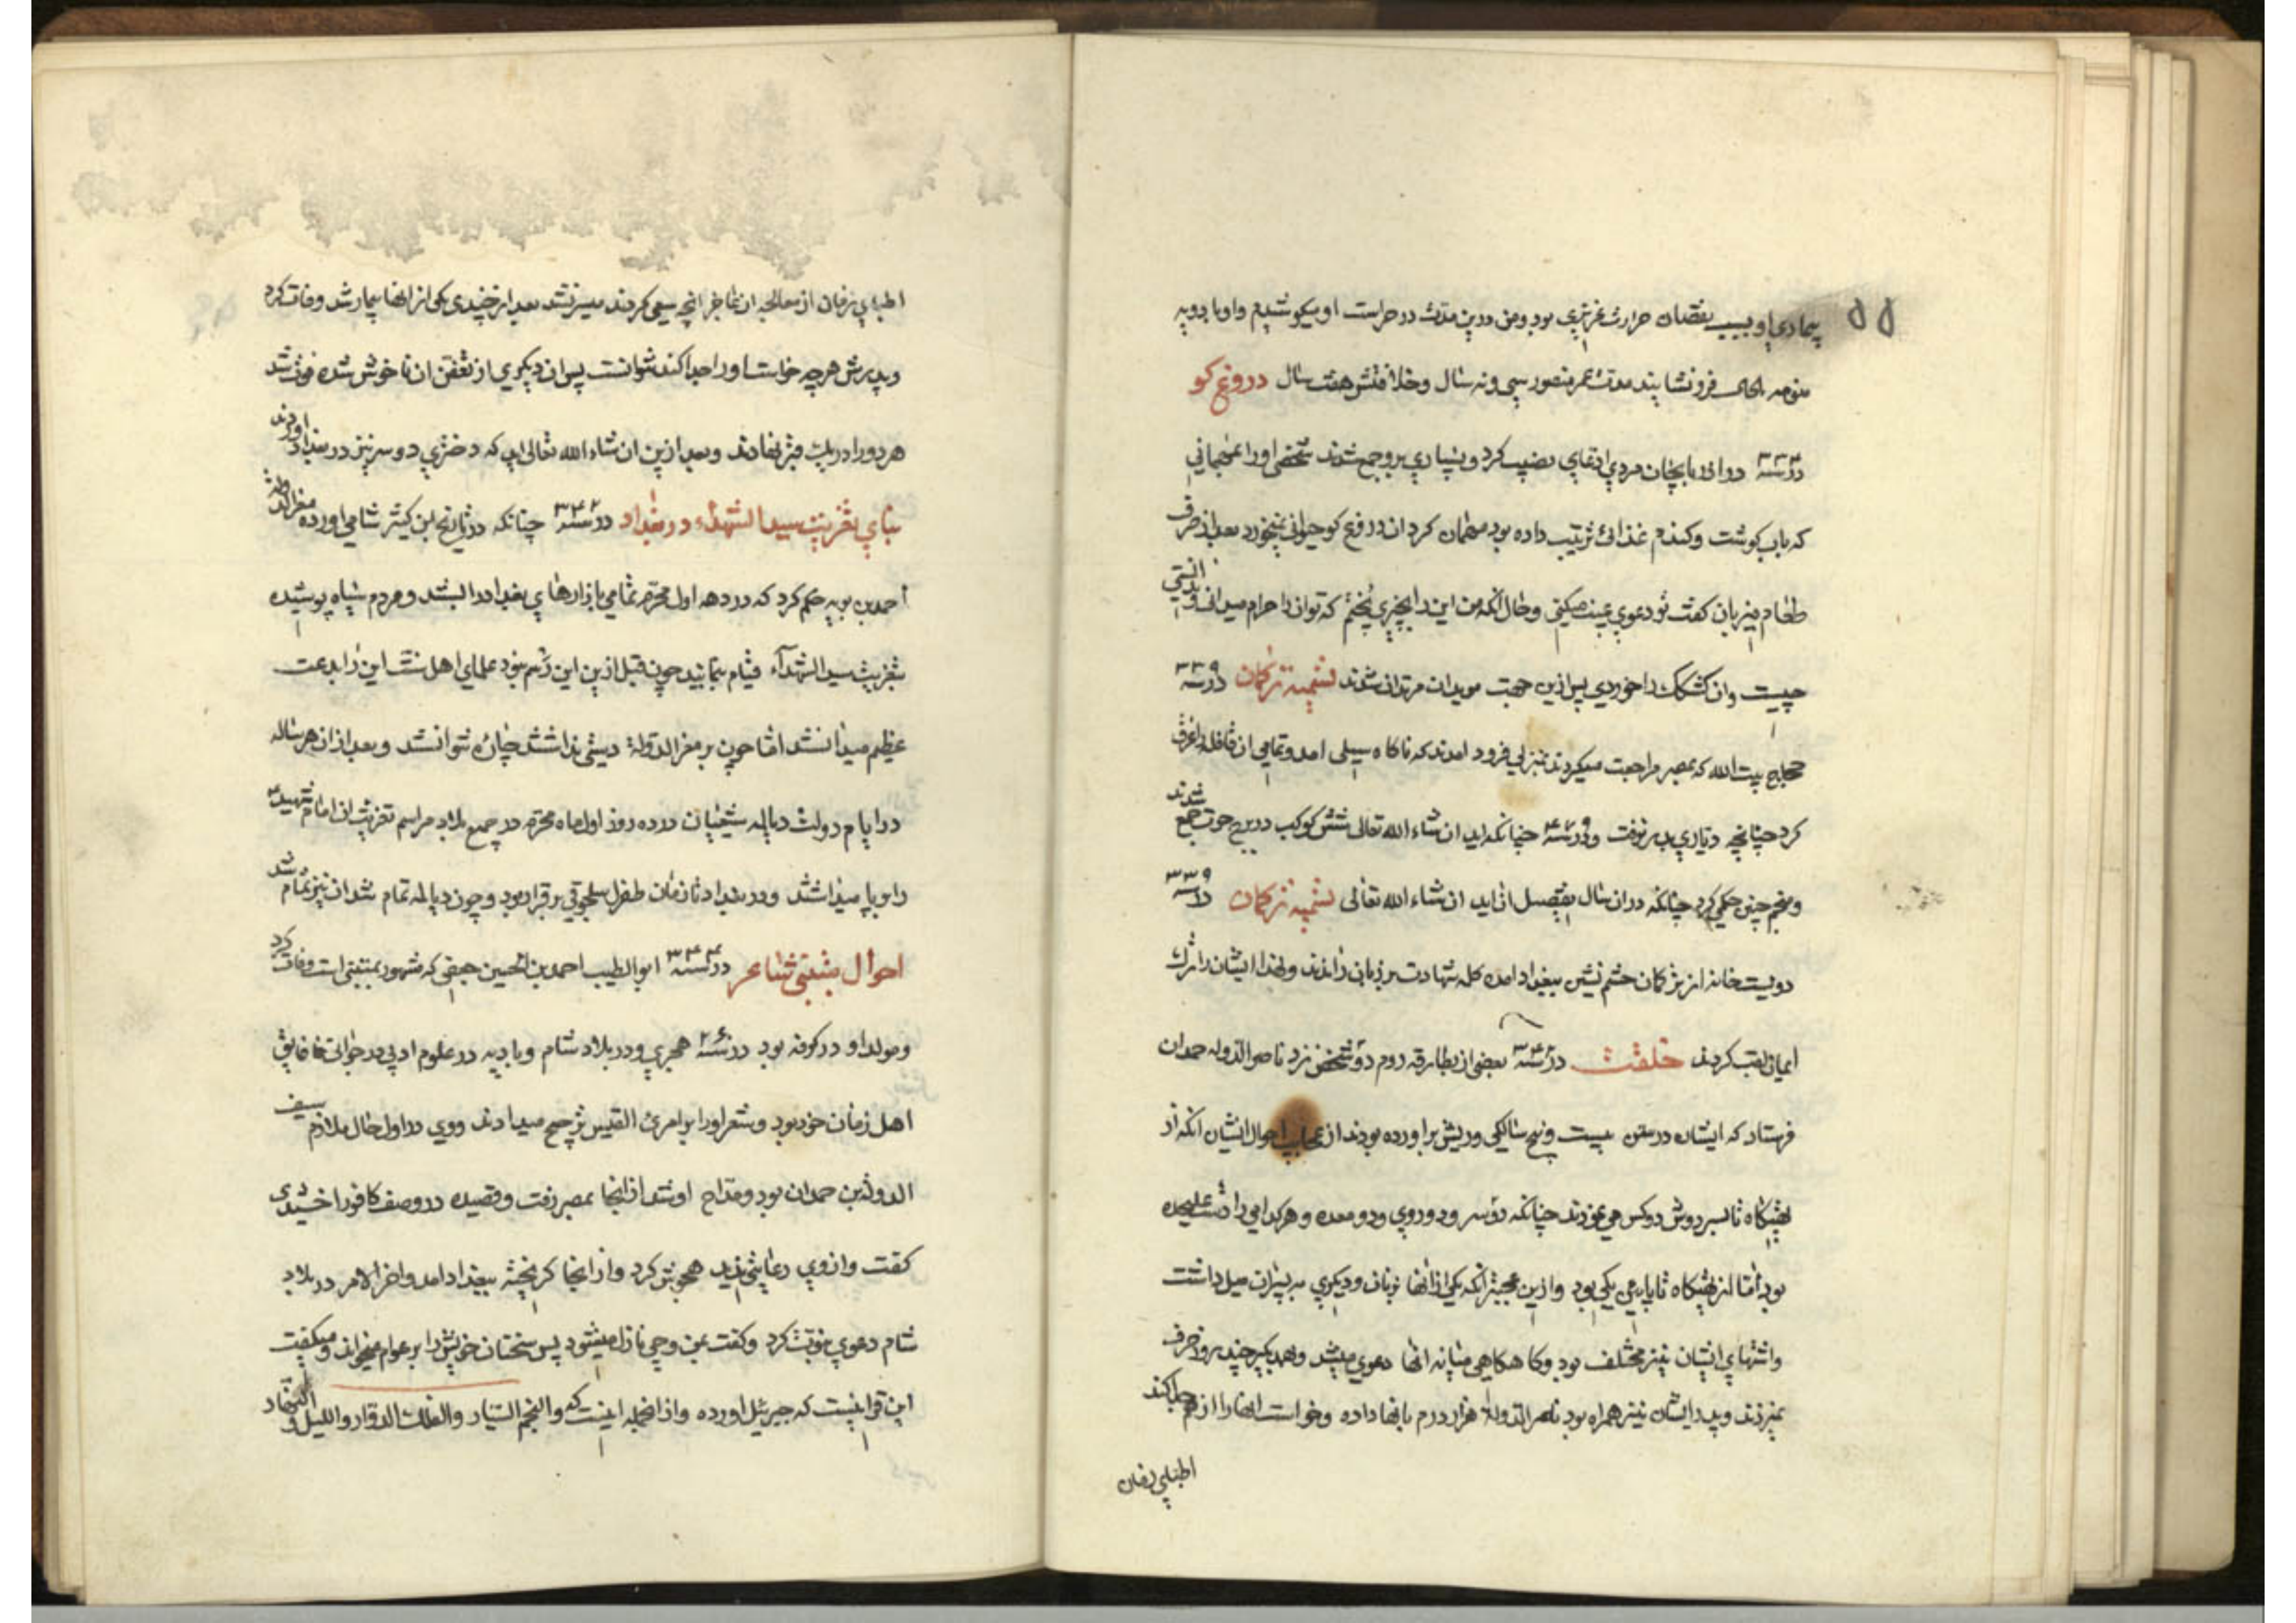 ۵۵
بیماری او بسبب نقصان حرارت غریزی بود و من درین مدت در حراست او میکوشیدم و او بادویه
فرونشانید مدت عمر منصور سی و نه سال و خلافتش هفت سال دروغ کو
در سنه ۳۳۳ در اذربایجان مردی ادعای کرد و بسیاری برو جمع شدند شخصی اورا بمهمانی
که باب کوشت و کندم غذائی ترتیب داده بود مهمان کرد ان دروغ کو حیوانی نمیخورد بعد از صرف
طعام میزبان کفت تو دعوی غیب میکنی و حال آنکه من این را بچیزی پختم که تو ان را حرام میدانی و ندانستی
چیست و ان کشکک را خوردی پس ازین جهت مریدان مرتدان شدند تسمیه ترکمان در سنه ۳۳۹
حجاج بیت الله که بمصر مراجعت میکردند بمنزلی فرود امدند که ناکاه سیلی امد و تمامی ان قافله را غرق
کرد چنانچه دیاری بدر نرفت و در سنه چنانکه اید ان شاء الله تعالی شش کوکب در برج حوت جمع شدند
و منجم چنین حکمی کرد چنانکه دران سال تفصیل ان اید ان شاء الله تعالی تسمیه ترکمان در سنه ۳۳۹
دویست خانه از ترکان حشم نشین ببغداد امده کلمه شهادت بر زبان راندند و لهذا ایشان را ترک
ایمان لقب کردند خلقت در سنه بعضی از بطارقه روم دو شخص نزد ناصر الدوله حمدان
فرستاد که ایشان در سن بیست و پنج سالکی و ریش براورده بودند از عجایب احوال ایشان انکه از
تهیکاه تا بسر دوش دو کس می نمودند چنانکه دو سر و دو روی و دو معده و هر کدامی را دست علیحده
بود اما از تهیکاه تا پای یکی بود و ازین عجیبتر انکه یکی از انها بزنان و دیکری به پسران میل داشت
و اشتهای ایشان نیز مختلف بود و کاهکاهی میانه انها دعوی میشد و بهمدیکر چند روز حرف
نمیزدند و پدر ایشان نیز همراه بود ناصر الدوله هزار درم بانها داده و خواست انها را از هم جدا کند
اطبای زمان
اطبای زمان از معالجه ان عاجز انچه سعی کردند میسر نشد بعد از چندی یکی از انها بیمار شد وفات کرد
و پدرش هر چه خواست اورا جدا کند نتوانست پس ان دیکری از تعفن ان ناخوش شده فوت شد
هر دو را در یک قبر نهادند و بعد ازین ان شاء الله تعالی اید که دختری دو سر نیز در بغداد اوردند
بنای تعزیت سید الشهداء در بغداد در سنه چنانکه در تاریخ ابن کثیر شامی اورده معز الدوله
احمد بن بویه حکم کرد که در دهه اول محرم تمامی بازارهای بغداد را بستند و مردم سیاه پوشیده
بتعزیت سید الشهداء قیام نمایند چون قبل ازین این رسم نبود علمای اهل سنت این را بدعت
عظیم میدانستند اما چون بر معز الدوله دستی نداشتند چاره نتوانستند و بعد ازان هر ساله
در ایام دولت دیالمه شیعیان در ده روز اول ماه محرم در جمیع بلاد مراسم تعزیت ان امام شهید
را برپا میداشتند و در بغداد تا زمان طغرل سلجوقی برقرار بود و چون دیالمه تمام شد ان نیز تمام شد
احوال متنبی شاعر در سنه ابو الطیب احمد بن الحسین جعفی که مشهور بمتنبی است وفات کرد
و مولد او در کوفه بود در سنه هجری و در بلاد شام و بادیه در علوم ادبی در جوانی فایق
اهل زمان خود بود و شعر اورا بر امرئ القیس ترجیح میدادند و وی در اول حال ملازم سیف
الدوله بن حمدان بود و مداح او شد از انجا بمصر رفت و قصیده در وصف کافور اخشیدی
کفت و از وی رعایتی ندید هجوش کرد و از انجا کریخته ببغداد امد و اخر الامر در بلاد
شام دعوی نبوت کرد و کفت بمن وحی نازل میشود پس سخنان خویش را بر عوام میخواند و میکفت
این قرآنیست که جبرئیل اورده و از انجمله اینست که و النجم السیار و الفلک الدوار و اللیل و النهار